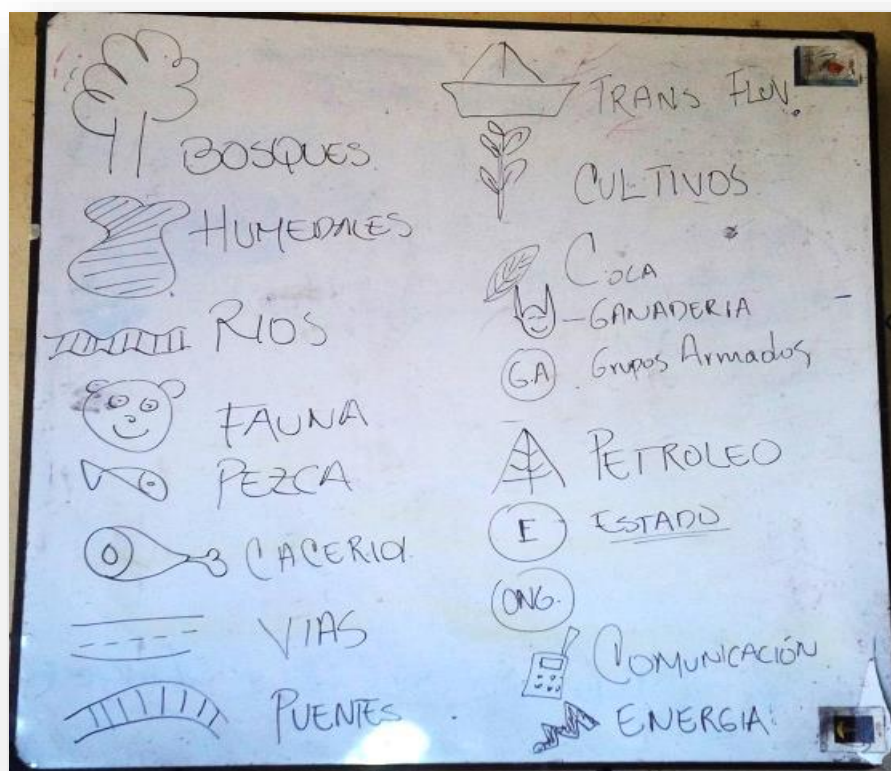 BOSQUES
HUMEDALES
RIOS
FAUNA
PEZCA
CACERIA
VIAS
PUENTES
TRANS FLUV.
CULTIVOS
COCA
-GANADERIA
G.A. Grupos Armados
PETROLEO
E ESTADO
ONG.
COMUNICACIÓN
ENERGIA